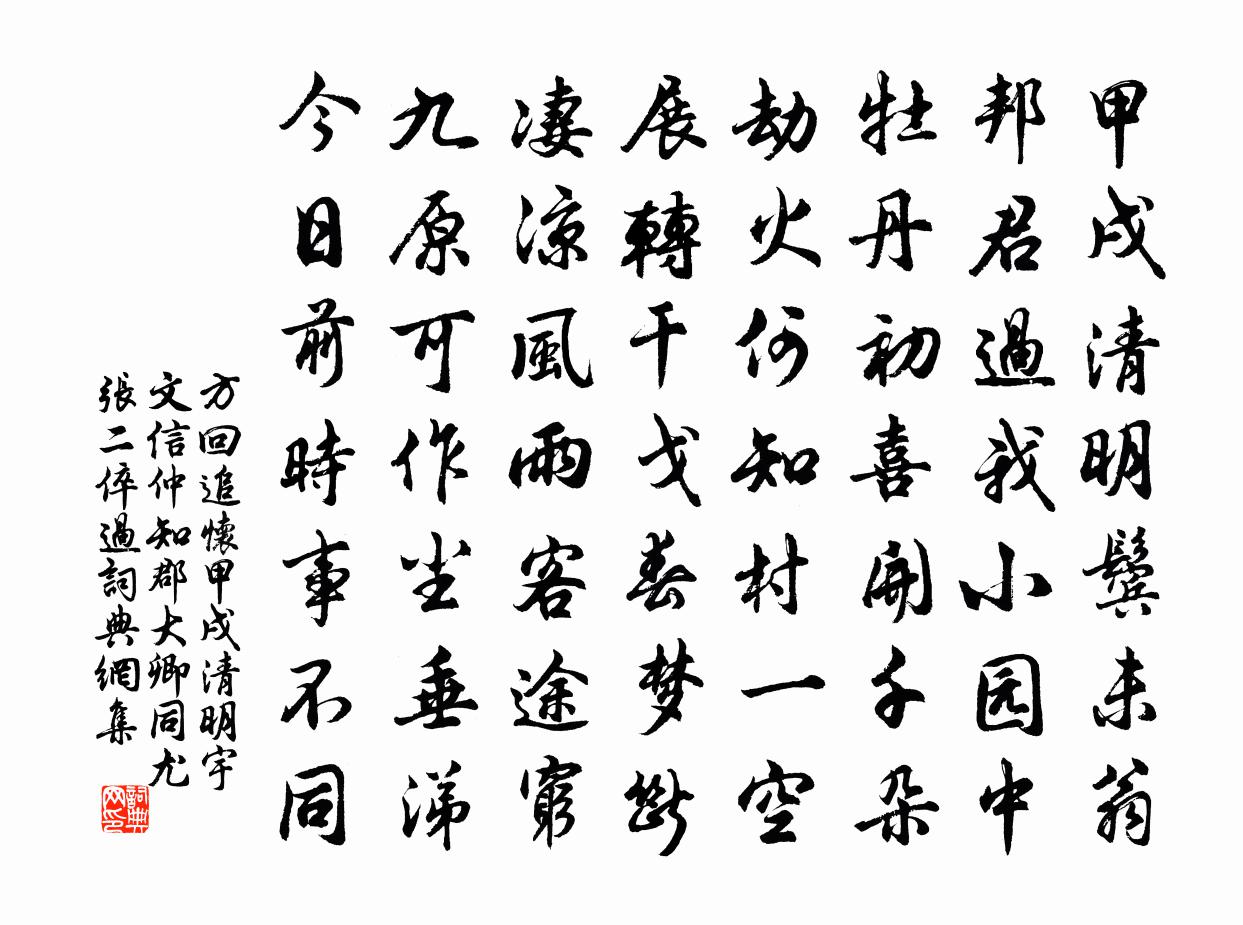 甲戌清明鬓未翁
邦君過我小园中
牡丹初喜開千朵
劫火何知村一空
展轉干戈春梦斷
凄涼風雨客途窮
九原可作坐垂涕
今日前時事不同
方回追懷甲戌清明宇
文信仲知郡大卿同尤
張二倅過詞典網集
詞典
网印